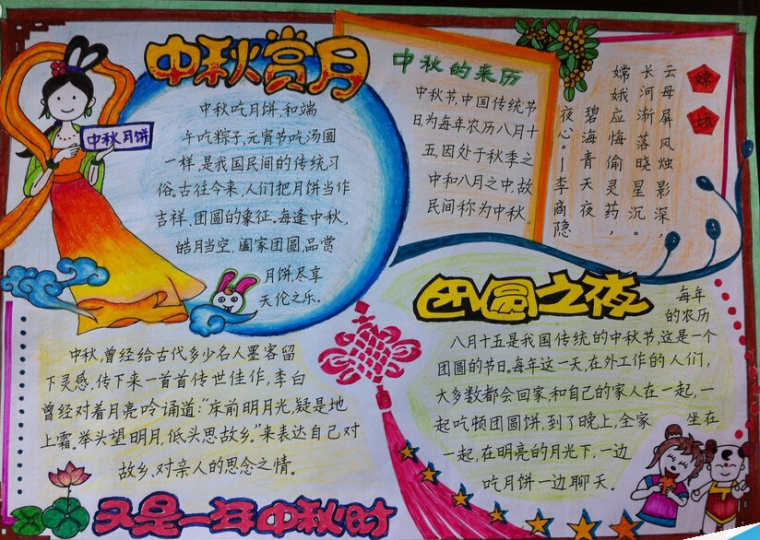 中秋赏月
中秋月饼
中秋吃月饼,和端
午吃粽子,元宵节吃汤圆
一样,是我国民间的传统习
俗。古往今来,人们把月饼当作
吉祥、团圆的象征。每逢中秋,
皓月当空,阖家团圆,品尝
月饼尽享
天伦之乐。
中秋的来历
中秋节,中国传统节
日为每年农历八月十
五,因处于秋季之
中和八月之中,故
民间称为中秋,
嫦娥
云母屏风烛影深,
长河渐落晓星沉。
嫦娥应悔偷灵药,
碧海青天夜
夜心。—李商隐
团圆之夜
每年
的农历
八月十五是我国传统的中秋节,这是一个
团圆的节日。每年这一天,在外工作的人们,
大多数都会回家,和自己的家人在一起,一
起吃顿团圆饼,到了晚上,全家 坐在
一起,在明亮的月光下,一边
吃月饼一边聊天。
中秋,曾经给古代多少名人墨客留
下灵感,传下来一首首传世佳作,李白
曾经对着月亮吟诵道:“床前明月光,疑是地
上霜。举头望明月,低头思故乡。”来表达自己对
故乡、对亲人的思念之情。
又是一年中秋时